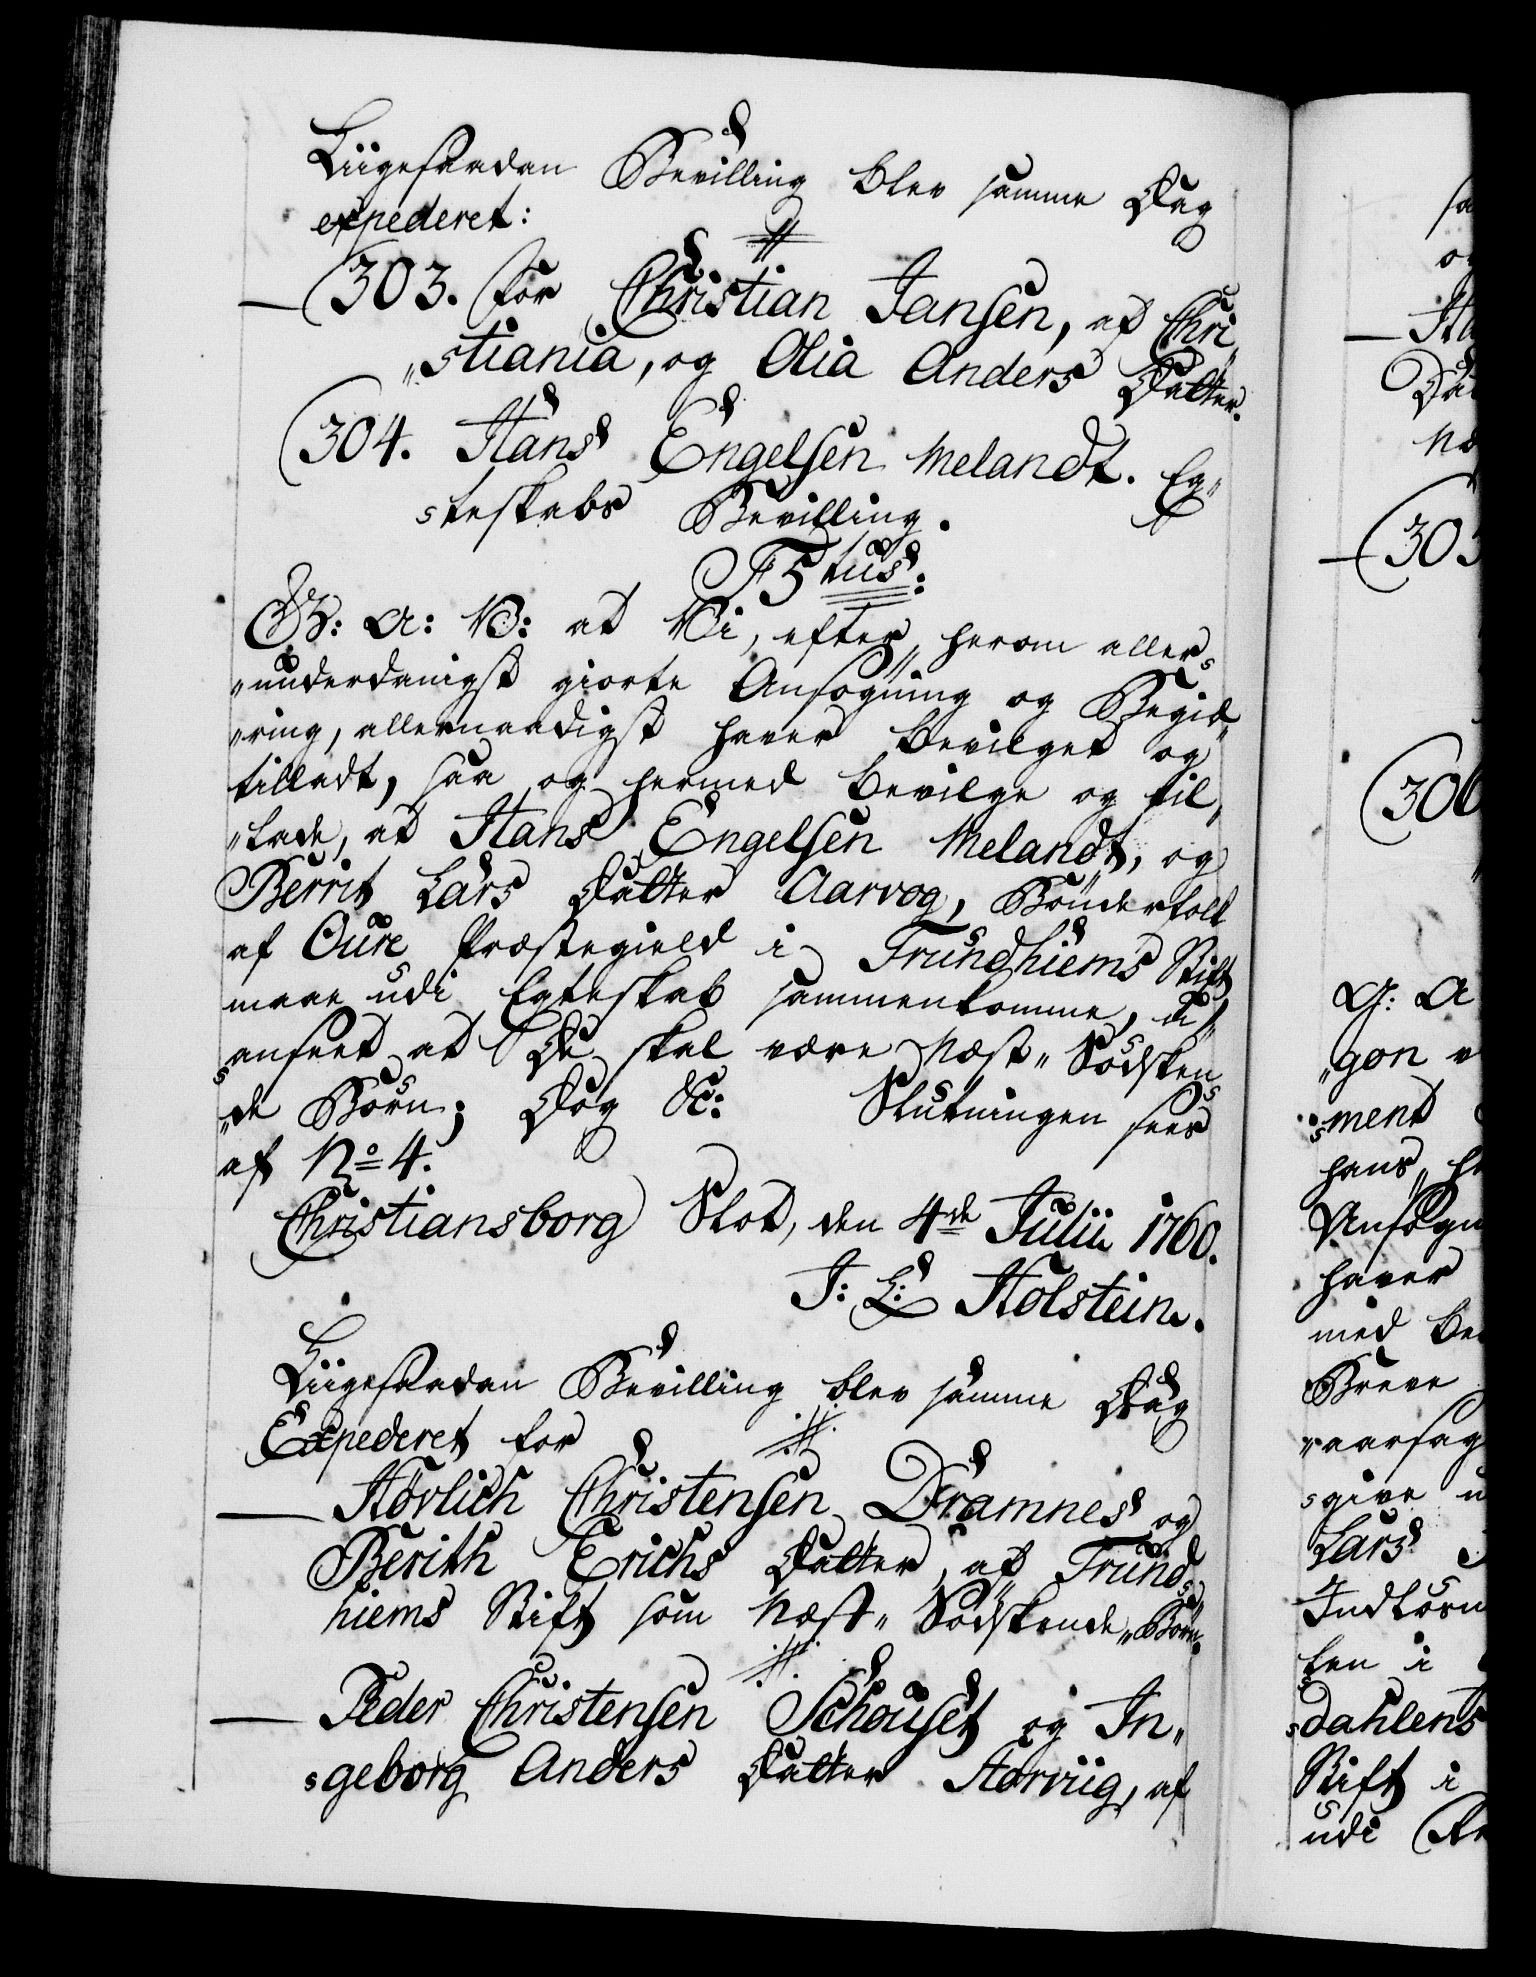 Liigesaadan Bevilling blev samme Dag
expederet:
303. for Christian Jansen, af Chri„
„stiania, og Olia Anders Datter.
304. Hans Engelsen Melandt. Eg„
teskabs Bevilling.
F5tus:
G: A: V: at Vi, efter herom aller„
„underdanigst giorte Ansøgning og Begiæ„
„ring, allernaadigst haver bevilget og
tilladt, saa og hermed bevilge og til„
„lade, at Hans Engelsen Melandt, og
Berrit Lars Datter Aarvog, Bønderfolk
af Oure Præstegield i Trundhiems Stift
maae udi Egteskab sammenkomme, u„
anseet at De skal være Næst„ Sødsken„
„de Børn; Dog &c: Slutningen sees
af No 4.
Christiansborg Slot, den 4de Julii 1760.
J: L: Holstein.
Liigesaadan Bevilling blev samme Dag
Expederet for
Hørlich Christensen Dramnes og
Berith Erichs Datter, af Trund„
hiems Stift som Næst„ Sødskende„Børn.
Peder Christensen Schouset og In„
geborg Anders Datter Harviig, af
sa
og
Ha
Dat
Næ
305
306
G: A
„gøn v
ment
hans, he
Ansøgn
haver
med be
Breve
„aarsag
give u
Lars
Indkøsn
len i
dahlens
Stift i
udi